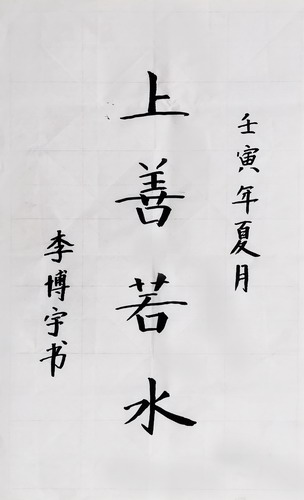 壬寅年夏月
上善若水
李博宇书